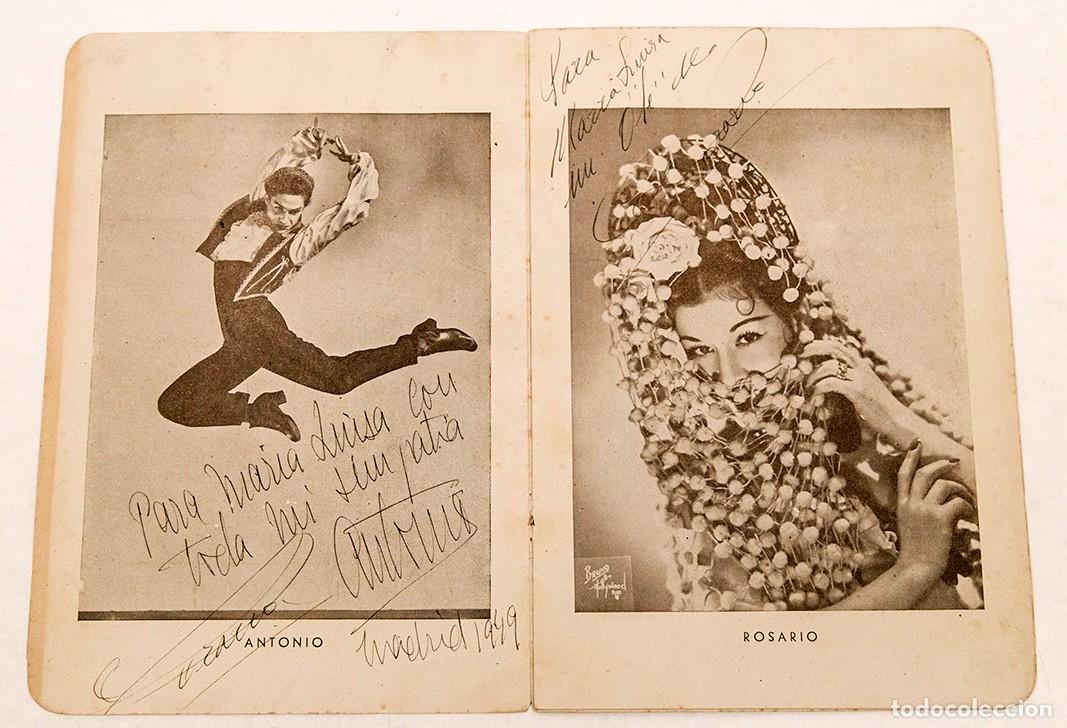 Para María Luisa con
toda mi simpatía
Antonio
Rosario
ANTONIO
Madrid 1949
Para
María Luisa
un "Olé" de
Rosario
Bruno
of
Hollywood
NYC
ROSARIO
todocoleccion